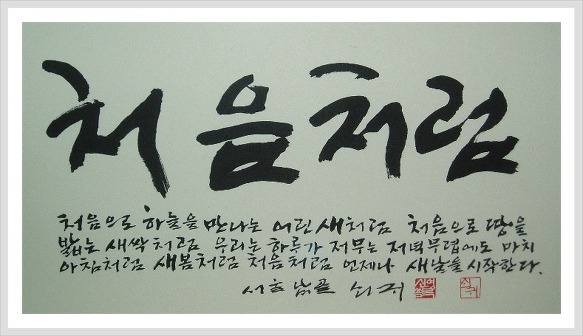 처음처럼
처음으로 하늘을 만나는 어린 새처럼 처음으로 땅을
밟는 새싹처럼 우리는 하루가 저무는 저녁무렵에도 마치
아침처럼 새봄처럼 처음처럼 언제나 새날을 시작한다.
서울 쇠귀